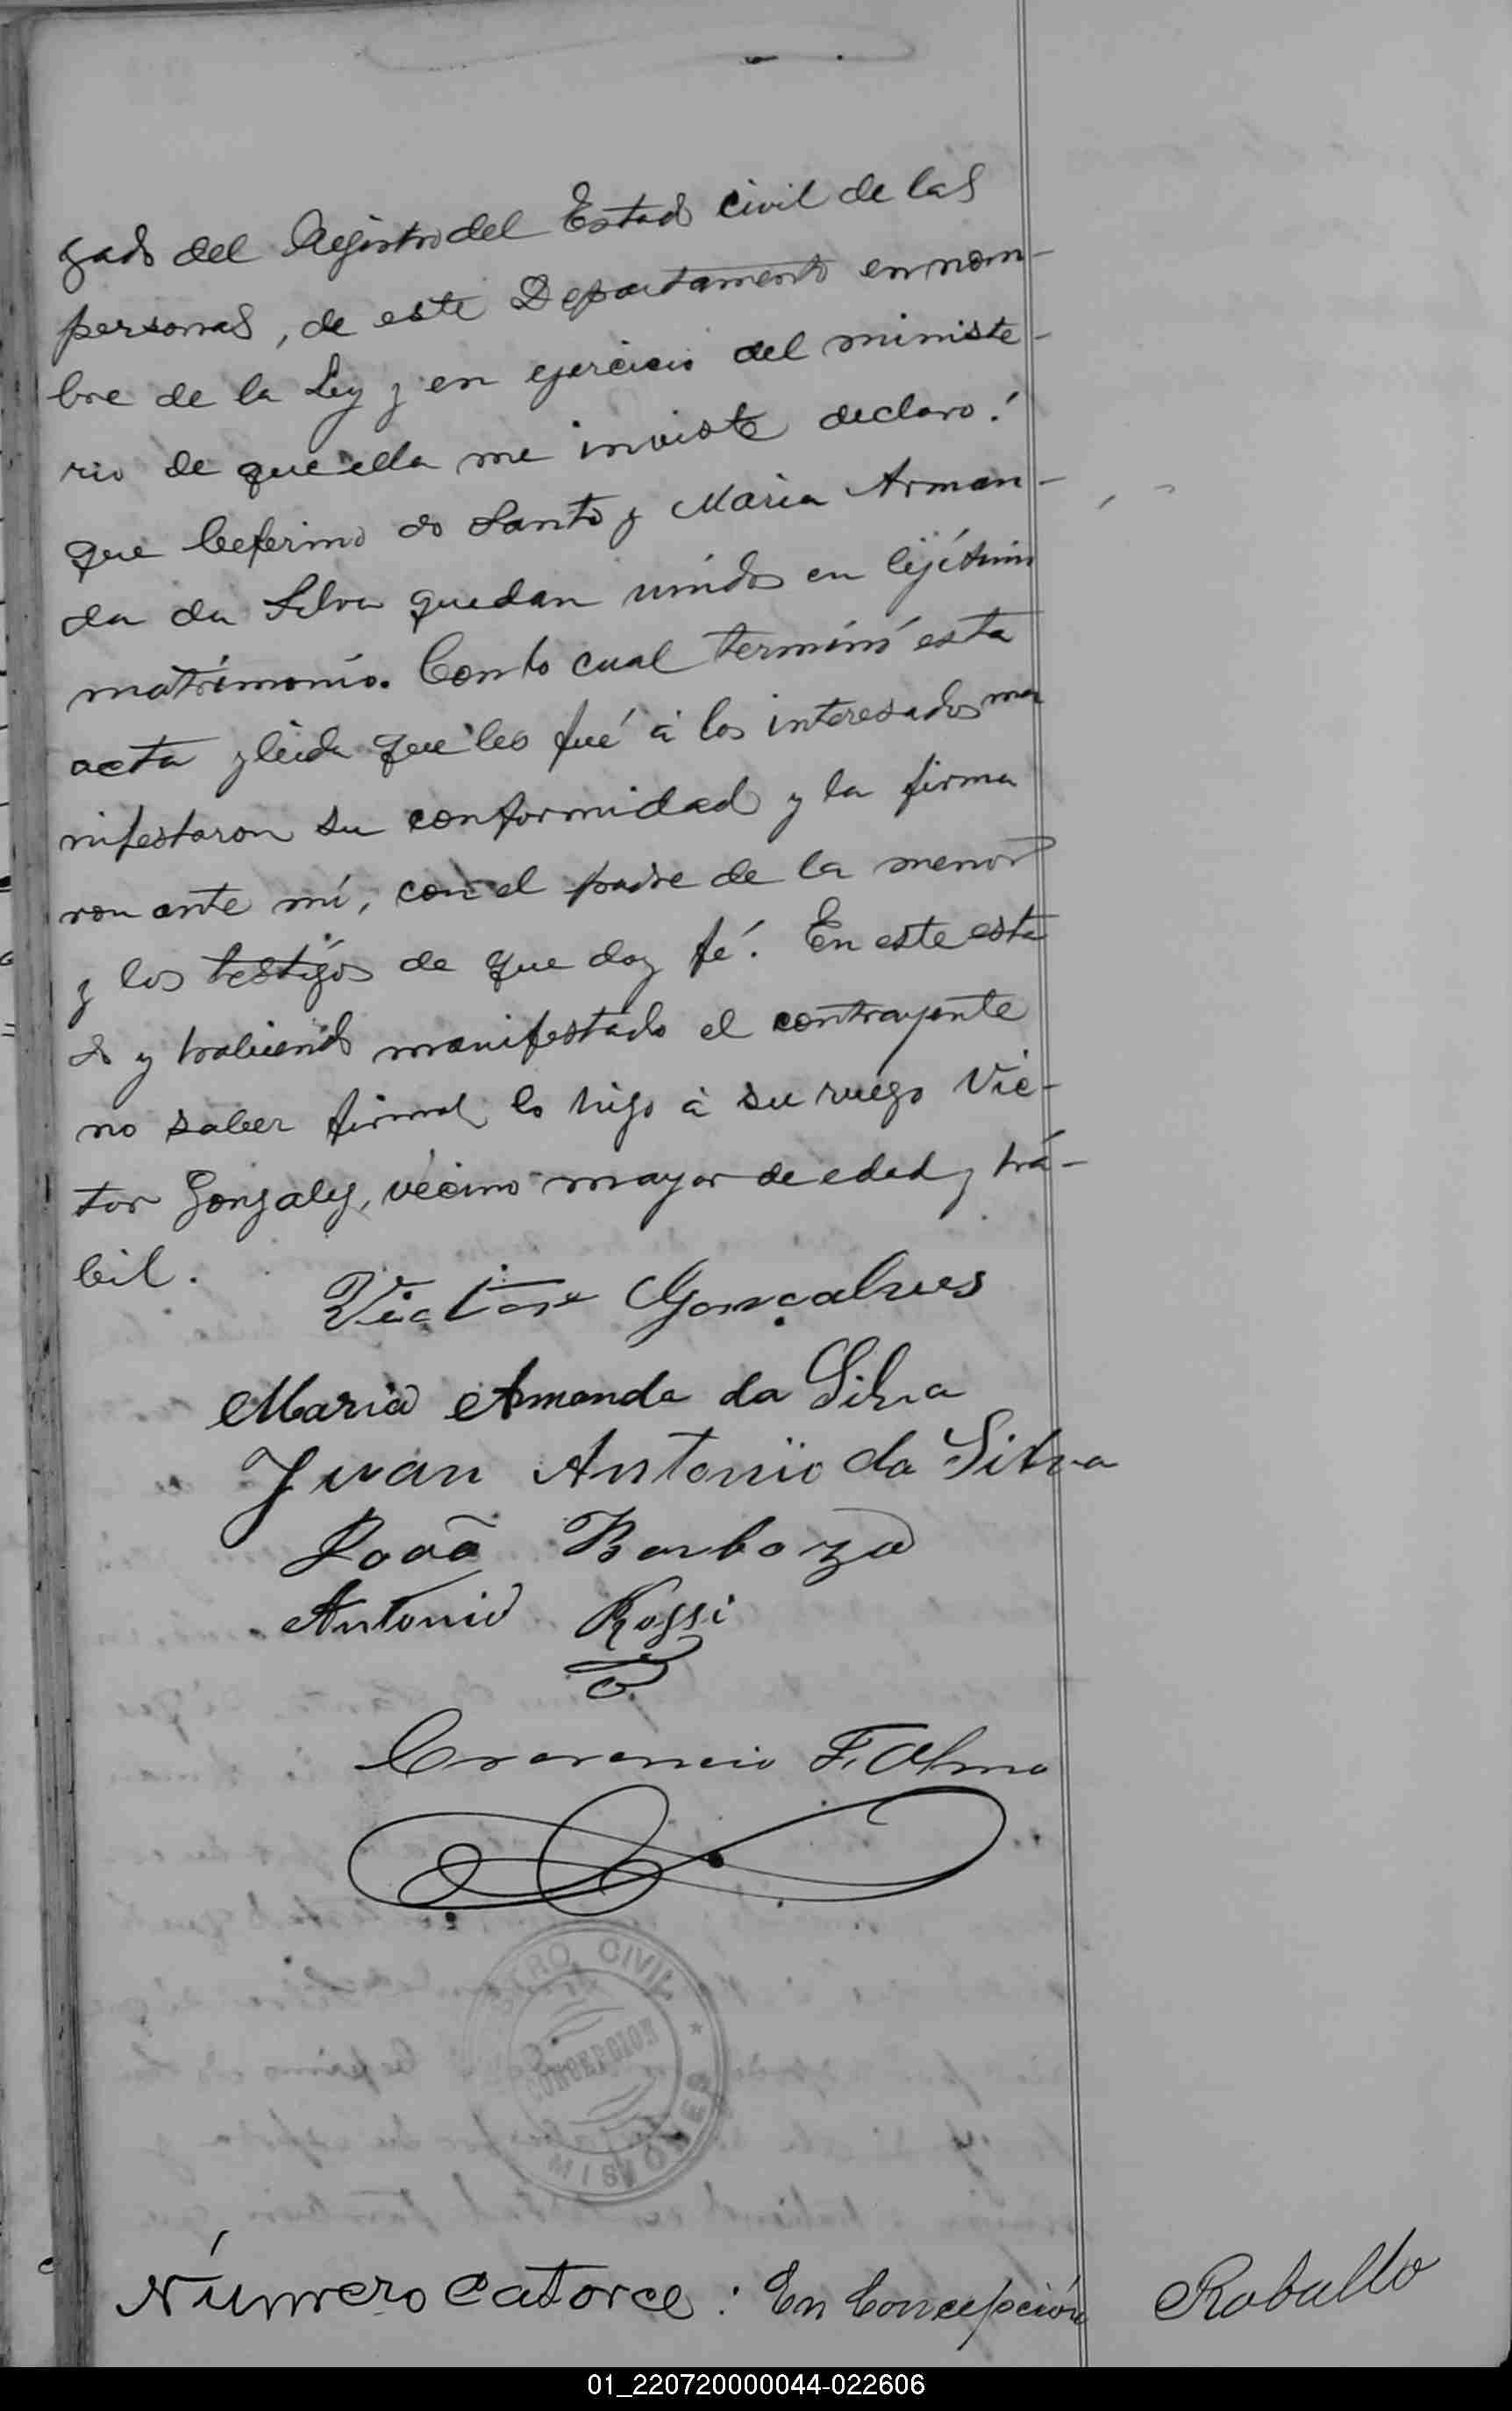 gado del Registro del Estado civil de las
personas, de este Departamento en nom-
bre de la Ley y en ejercicio del ministe-
rio de que ella me inviste declaro:
que Ceferino do Santo y Maria Arman-
da da Silva quedan unidos en lejitimo
matrimonio. Con lo cual terminó esta
acta y leida que les fué á los interesados ma
nifestaron su conformidad y la firma
ron ante mí, con el padre de la menor
y los testigos de que doy fé. En este esta
do y habiendo manifestado el contrayente
no saber firmar, lo hizo á su ruego Vic-
tor Gonzalez, vecino mayor de edad y há-
bil.
Victor Gonçalves
Maria Amanda da Silva
Juan Antonio da Silva
João Barboza
Antonio Rossi
F. Olmo
REGISTRO CIVIL
CONCEPCION
MISIONES
Número Catorce: En Concepción
Roballo
01_220720000044-022606